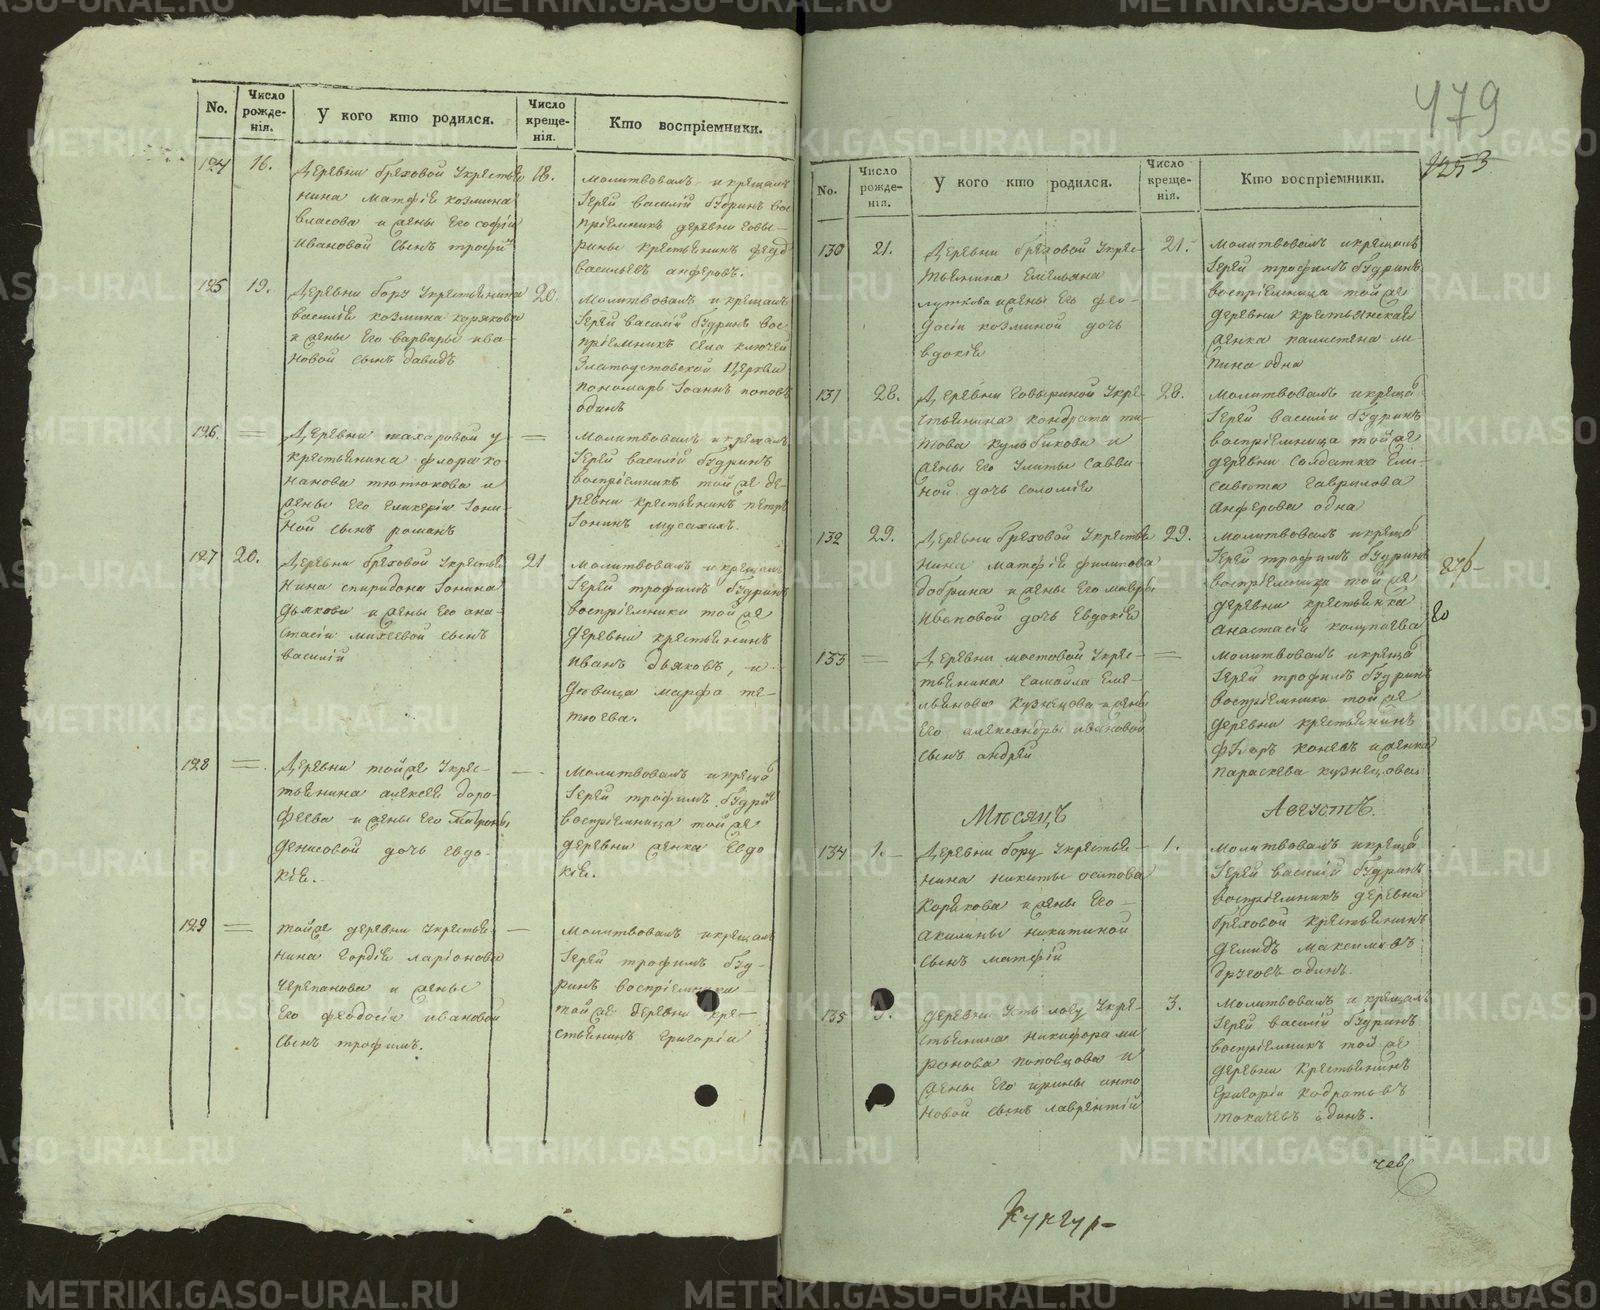 No.
Число рожде-нія.
У кого кто родился.
Число креще-нія.
Кто воспріемники.
124
16.
Деревни бреховой Укрестья
нина Матфіе козмина
власова и жены его софіи
ивановой сынъ трофи
18.
молитвовалъ и крещалъ
Іерей василій будринъ вос
пріемникъ деревни говы-
рины крестьянинъ
васильевъ анферовъ.
125
19.
Деревни бору Укрестьянина
василіе козмина корякова
и жены его варвары ива-
новой сынъ давидъ
20.
молитвовалъ и крещалъ
Іерей василій будринъ вос
пріемникъ села ключей
Златоустовской церкви
пономарь Іоаннъ поповъ
одинъ
126.
Деревни захаровой у
крестьянина флора ко
нанова тютюкова и
жены его гликеріи Іони
ной сынъ романъ
молитвовалъ и крещалъ
Іерей василій будринъ
воспріемникъ той же де-
ревни крестьянинъ петръ
Іонинъ мусахихъ.
127
20.
Деревни бреховой Укрестья
нина спиридона Іонина
дьякова и жены его ана-
стасіи михеевой сынъ
василій
21
молитвовалъ и крещалъ
Іерей трофимъ будринъ
воспріемники той же
деревни крестьянинъ
иванъ дьяковъ, и
девица марфа те-
тюева.
128
Деревни той же Укрес-
тьянина алексеи доро-
феева и жены его матроны
денисовой дочь евдо-
кіе.
молитвовалъ и креща
Іерей трофимъ будри
воспріемница той же
деревни женка Евдо
кіе.
129
той же деревни Укрестья-
нина гордіе ларіонова
черепанова и жены
его феодосіи ивановой
сынъ трофимъ.
молитвовалъ и крещалъ
Іерей трофимъ буд-
ринъ воспріемника
той же деревни кре-
стьянинъ григоріи
479
1253
No.
Число рожде-нія.
У кого кто родился.
Число креще-нія.
Кто воспріемники.
130
21.
Деревни бреховой Укрес-
тьянина Емельяна
луткова и жены его фео-
досіи козминой дочь
вдокіе
21.
молитвовалъ и крещалъ
Іерей трофимъ будринъ
воспріемница той же
деревни крестьянская
женка
пина одна
131
28.
Деревни говыриной Укре-
стьянина кондрата ти-
това кульбикова и
жены его Улиты савви-
ной дочь соломіе
28.
молитвовалъ и креща
Іерей василіи будринъ
воспріемница той же
деревни солдатка Ели-
савета гаврилова
анферова одна
132
29.
Деревни бреховой Укрестья
нина матфіе филипова
добрина и жены его мавры
ивановой дочь Евдокіе
29.
молитвовалъ и креща
Іерей трофимъ будринъ
воспріемница той же
деревни крестьянка
анастасіи колупаева
133
Деревни мостовой Укрес-
тьянина самойла еме-
льянова кузнецова и жены
его александры ивановой
сынъ андрей
молитвовалъ и креща
Іерей трофимъ будринъ
воспріемники той же
деревни крестьянинъ
федоръ коневъ и женка
параскева кузнецовы
Месяцъ
Августъ.
134
1.
Деревни бору Укрестья-
нина никиты осипова
корякова и жены его
акилины никитиной
сынъ матфій
1.
молитвовалъ и креща
Іерей василій будринъ
воспріемникъ деревни
бреховой крестьянинъ
демидъ максимовъ
бруговъ одинъ.
135
3.
деревни усть логу Укре-
стьянина никифора ми
ронова поповцова и
жены его ирины анто
новой сынъ лаврентій
3.
молитвовалъ и крещалъ
Іерей василій будринъ
воспріемникъ той же
деревни крестьянинъ
григоріи кодратьевъ
токачевъ одинъ.
Кунгур-